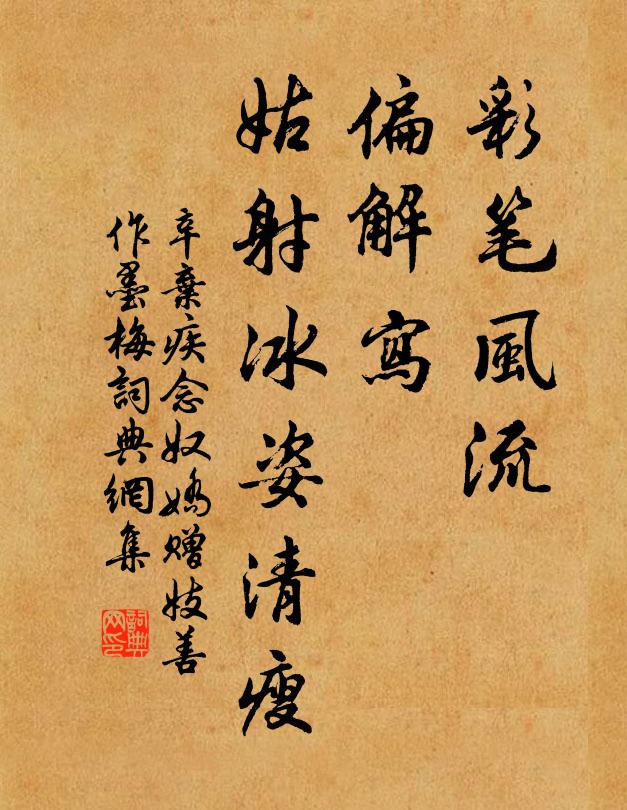 彩笔風流
偏解寫
姑射冰姿清瘦
辛棄疾念奴嬌赠妓善
作墨梅詞典網集
詞典网印